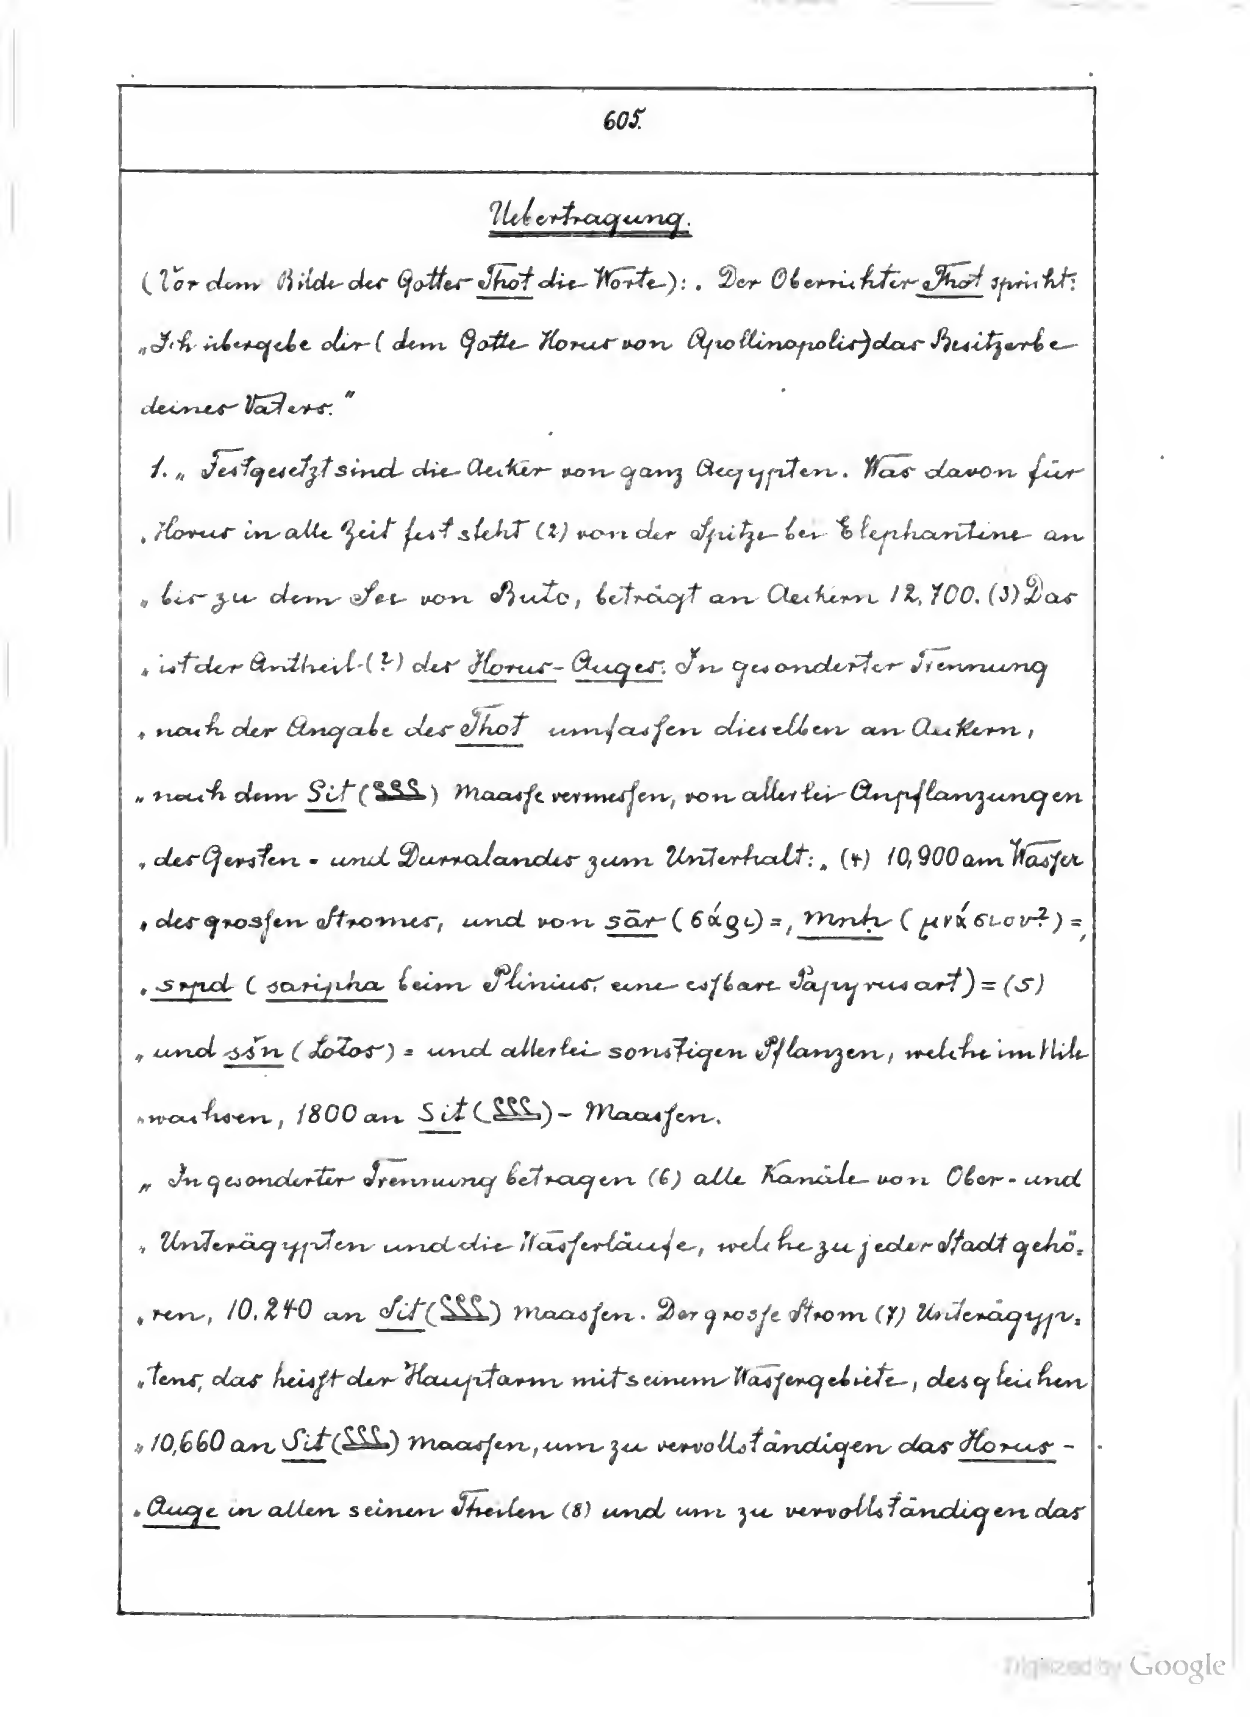 605.
Uebertragung.
(Vor dem Bilde des Gottes Thot die Worte): „Der Oberrichter Thot spricht:
„Ich übergebe dir (dem Gotte Horus von Apollinopolis) das Besitzerbe
deines Vaters.“
1. „Festgesetzt sind die Aecker von ganz Aegypten. Was davon für
„Horus in alle Zeit fest steht (2) von der Spitze bei Elephantine an
„bis zu dem See von Buto, beträgt an Aeckern 12,700. (3) Das
„ist der Antheil (?) des Horus-Auges. In gesonderter Trennung
„nach der Angabe des Thot umfassen dieselben an Aeckern,
„nach dem Sit () Maasse vermessen, von allerlei Anpflanzungen
„des Gersten- und Durralandes zum Unterhalt: „(4) 10,900 am Wasser
„des grossen Stromes, und von sār (σάρι) =, mnḥ (μνάσιον?) =,
„srpd (saripha beim Plinius, eine essbare Papyrusart) = (5)
„und sšn (Lotos) = und allerlei sonstigen Pflanzen, welche im Nile
„wachsen, 1800 an Sit () - Maassen.
„In gesonderter Trennung betragen (6) alle Kanäle von Ober- und
„Unterägypten und die Wasserläufe, welche zu jeder Stadt gehö=
„ren, 10.240 an Sit () Maassen. Der grosse Strom (7) Unterägyp=
„tens, das heisst der Hauptarm mit seinem Wassergebiete, desgleichen
„10,660 an Sit () Maassen, um zu vervollständigen das Horus-
„Auge in allen seinen Theilen (8) und um zu vervollständigen das
Digitized by Google